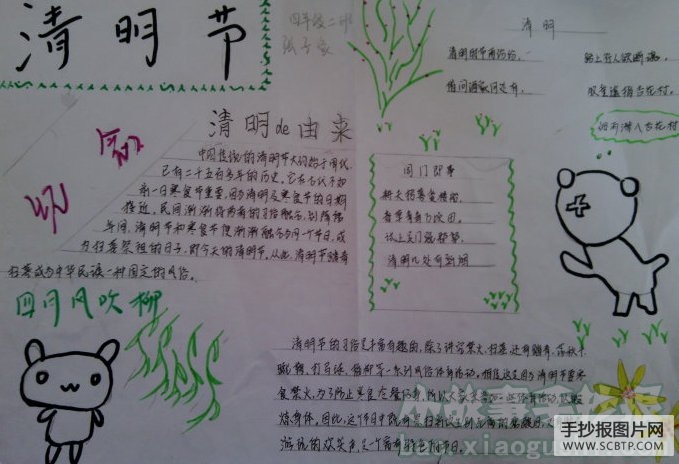 清明节
四年级二班
清明
清明时节雨纷纷，
路上行人欲断魂。
借问酒家何处有，
牧童遥指杏花村。
清明 de 由来
中国传统的清明节大约始于周代，
已有二千五百多年的历史，它在古代不如
前一日寒食节重要，因为清明及寒食节的日期
接近，民间渐渐将两者的习俗融合，到隋唐
年间，清明节和寒食节便渐渐融合为同一个节日，成
为扫墓祭祖的日子，即今天的清明节。从此，清明节踏青
扫墓成为中华民族一种固定的风俗。
四月风吹柳
清明几处有新烟
清明节的习俗是丰富有趣的，除了讲究禁火、扫墓，还有踏青、荡秋千
蹴鞠、打马球、插柳等一系列风俗体育活动。相传这是因为清明节要寒
食禁火，为了防止寒食冷餐伤身，所以大家来参加一些体育活动，以锻
炼身体。因此，这个节日中既有
游玩的欢笑声，是一个富有特色的节日。
小故事手抄报
手抄报图片网
www.SCBTP.com